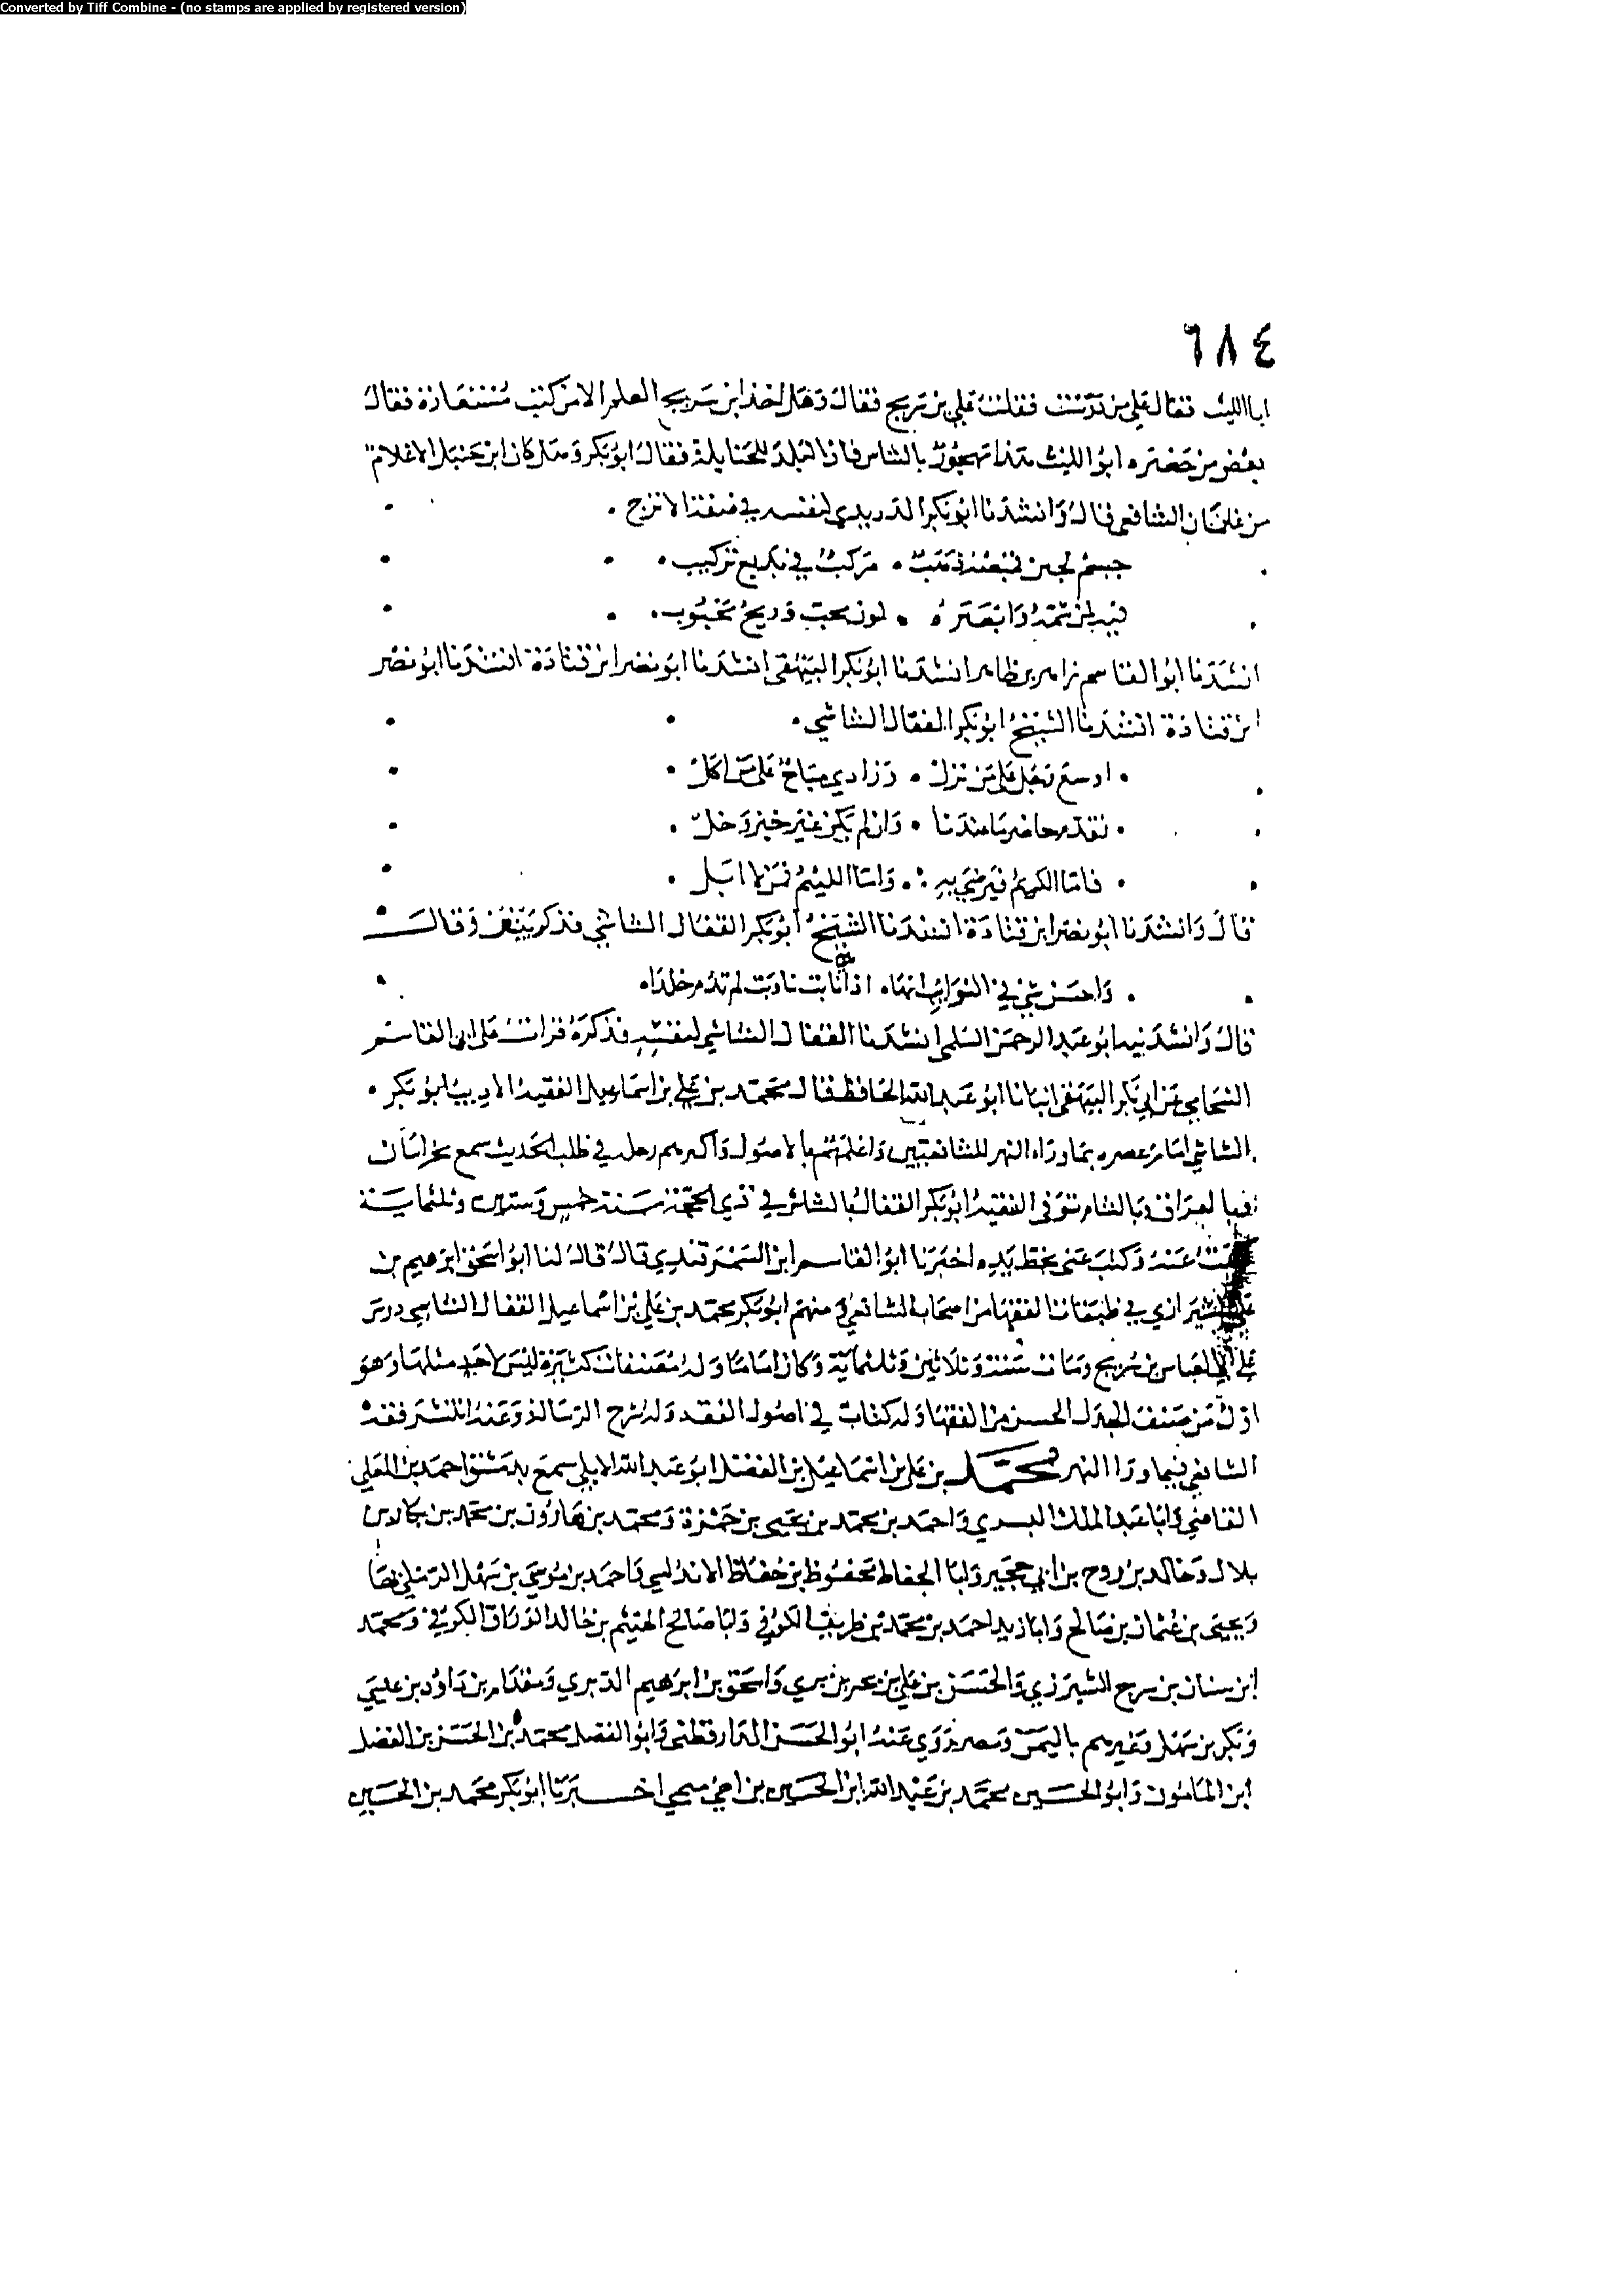 Converted by Tiff Combine - (no stamps are applied by registered version)
٦٨٤
ابا الليث فقال على من درست فقلت على بن سريج فقال وهل اخذ ابن سريج العلم الا من كتب مستعارة فقال
بعض من حضره ابو الليث هذا مهجور بالشاش فان البلد للحنابلة فقال ابو بكر وهل كان ابن حنبل الا غلام
من غلمان الشافعي قال وانشدنا ابو بكر الدريدي لنفسه في صفة الاترج
جسم لجين قميصه ذهب مركب في بديع تركيب
فيه لمن شمه وابصره لون محب وريح محبوب
انشدنا ابو القاسم زاهر بن طاهر انشدنا ابو بكر البيهقي انشدنا ابو نصر ابن قتادة انشدنا ابو نصر
ابن قتادة انشدنا الشيخ ابو بكر القفال الشاشي
اوسع رحلي على من نزل وزادي مباح على من اكل
نقدم حاضر ما عندنا وان لم يكن غير خبز وخل
فاما الكريم فيرضى به واما اللئيم فمن لا ابل
قال وانشدنا ابو نصر ابن قتادة انشدنا الشيخ ابو بكر القفال الشاشي فذكر بيتين وقال
واحسن شي في النوائب انها اذا نابت نابت لم تدم خلدا
قال وانشدنيه ابو عبد الرحمن السلمي انشدنا القفال الشاشي لنفسه فذكره قرات على ابي القاسم
الشحامي عن ابي بكر البيهقي انبانا ابو عبد الله الحافظ قال محمد بن علي بن اسماعيل الفقيه الاديب ابو بكر
الشاشي امام عصره بما وراء النهر للشافعيين واعلمهم بالاصول واكثرهم رحلة في طلب الحديث سمع بخراسان
وبالعراق وبالشام توفى الفقيه ابو بكر القفال بالشاش في ذي الحجة سنة خمس وستين وثلثماية
كتبت عنه وكتب عني بخط يده اخبرنا ابو القاسم ابن السمرقندي قال قال لنا ابو اسحق ابرهيم بن
علي الشيرازي في طبقات الفقها من اصحاب الشافعي منهم ابو بكر محمد بن علي بن اسماعيل القفال الشاشي درس
على ابي العباس بن سريج ومات سنة وثلاثين وثلثماية وكان اماما وله مصنفات كثيرة ليس لاحد مثلها وهو
اول من صنف الجدل الحسن من الفقها وله كتاب في اصول الفقه وله شرح الرسالة وعنه انتشر فقه
الشافعي فيما ورا النهر محمد بن علي بن اسماعيل بن الفضل ابو عبد الله الايلي سمع بدمشق احمد بن المعلى
القاضي وابا عبد الملك البسري واحمد بن محمد بن يحيى بن حمزة ومحمد بن هارون بن محمد بن بكار بن
بلال وخالد بن روح بن ابي حجير وابا الحفاظ محفوظ بن حفاظ الاندلسي واحمد بن موسى بن سهل الرملي بها
ويحيى بن عثمان بن صالح وابا زيد احمد بن محمد بن طريف الكوفي وابا صالح الهيثم بن خالد الوراق الكوفي ومحمد
ابن سنان بن سرح الشيزري والحسن بن علي بن بحر بن بري واسحق بن ابرهيم الدبري ومقدام بن داود بن عيسى
وبكر بن سهل وغيرهم باليمن ومصر روى عنه ابو الحسن الدارقطني وابو الفضل محمد بن الحسن بن الفضل
ابن المامون وابو الحسين محمد بن عبد الله ابن الحسين بن اخي ميمي اخبرنا ابو بكر محمد بن الحسين